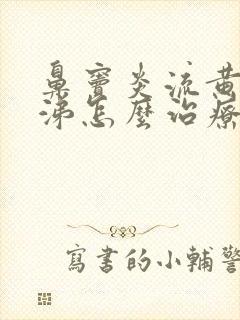 鼻竇炎流黃
涕怎麼治療
寫書的小輔警